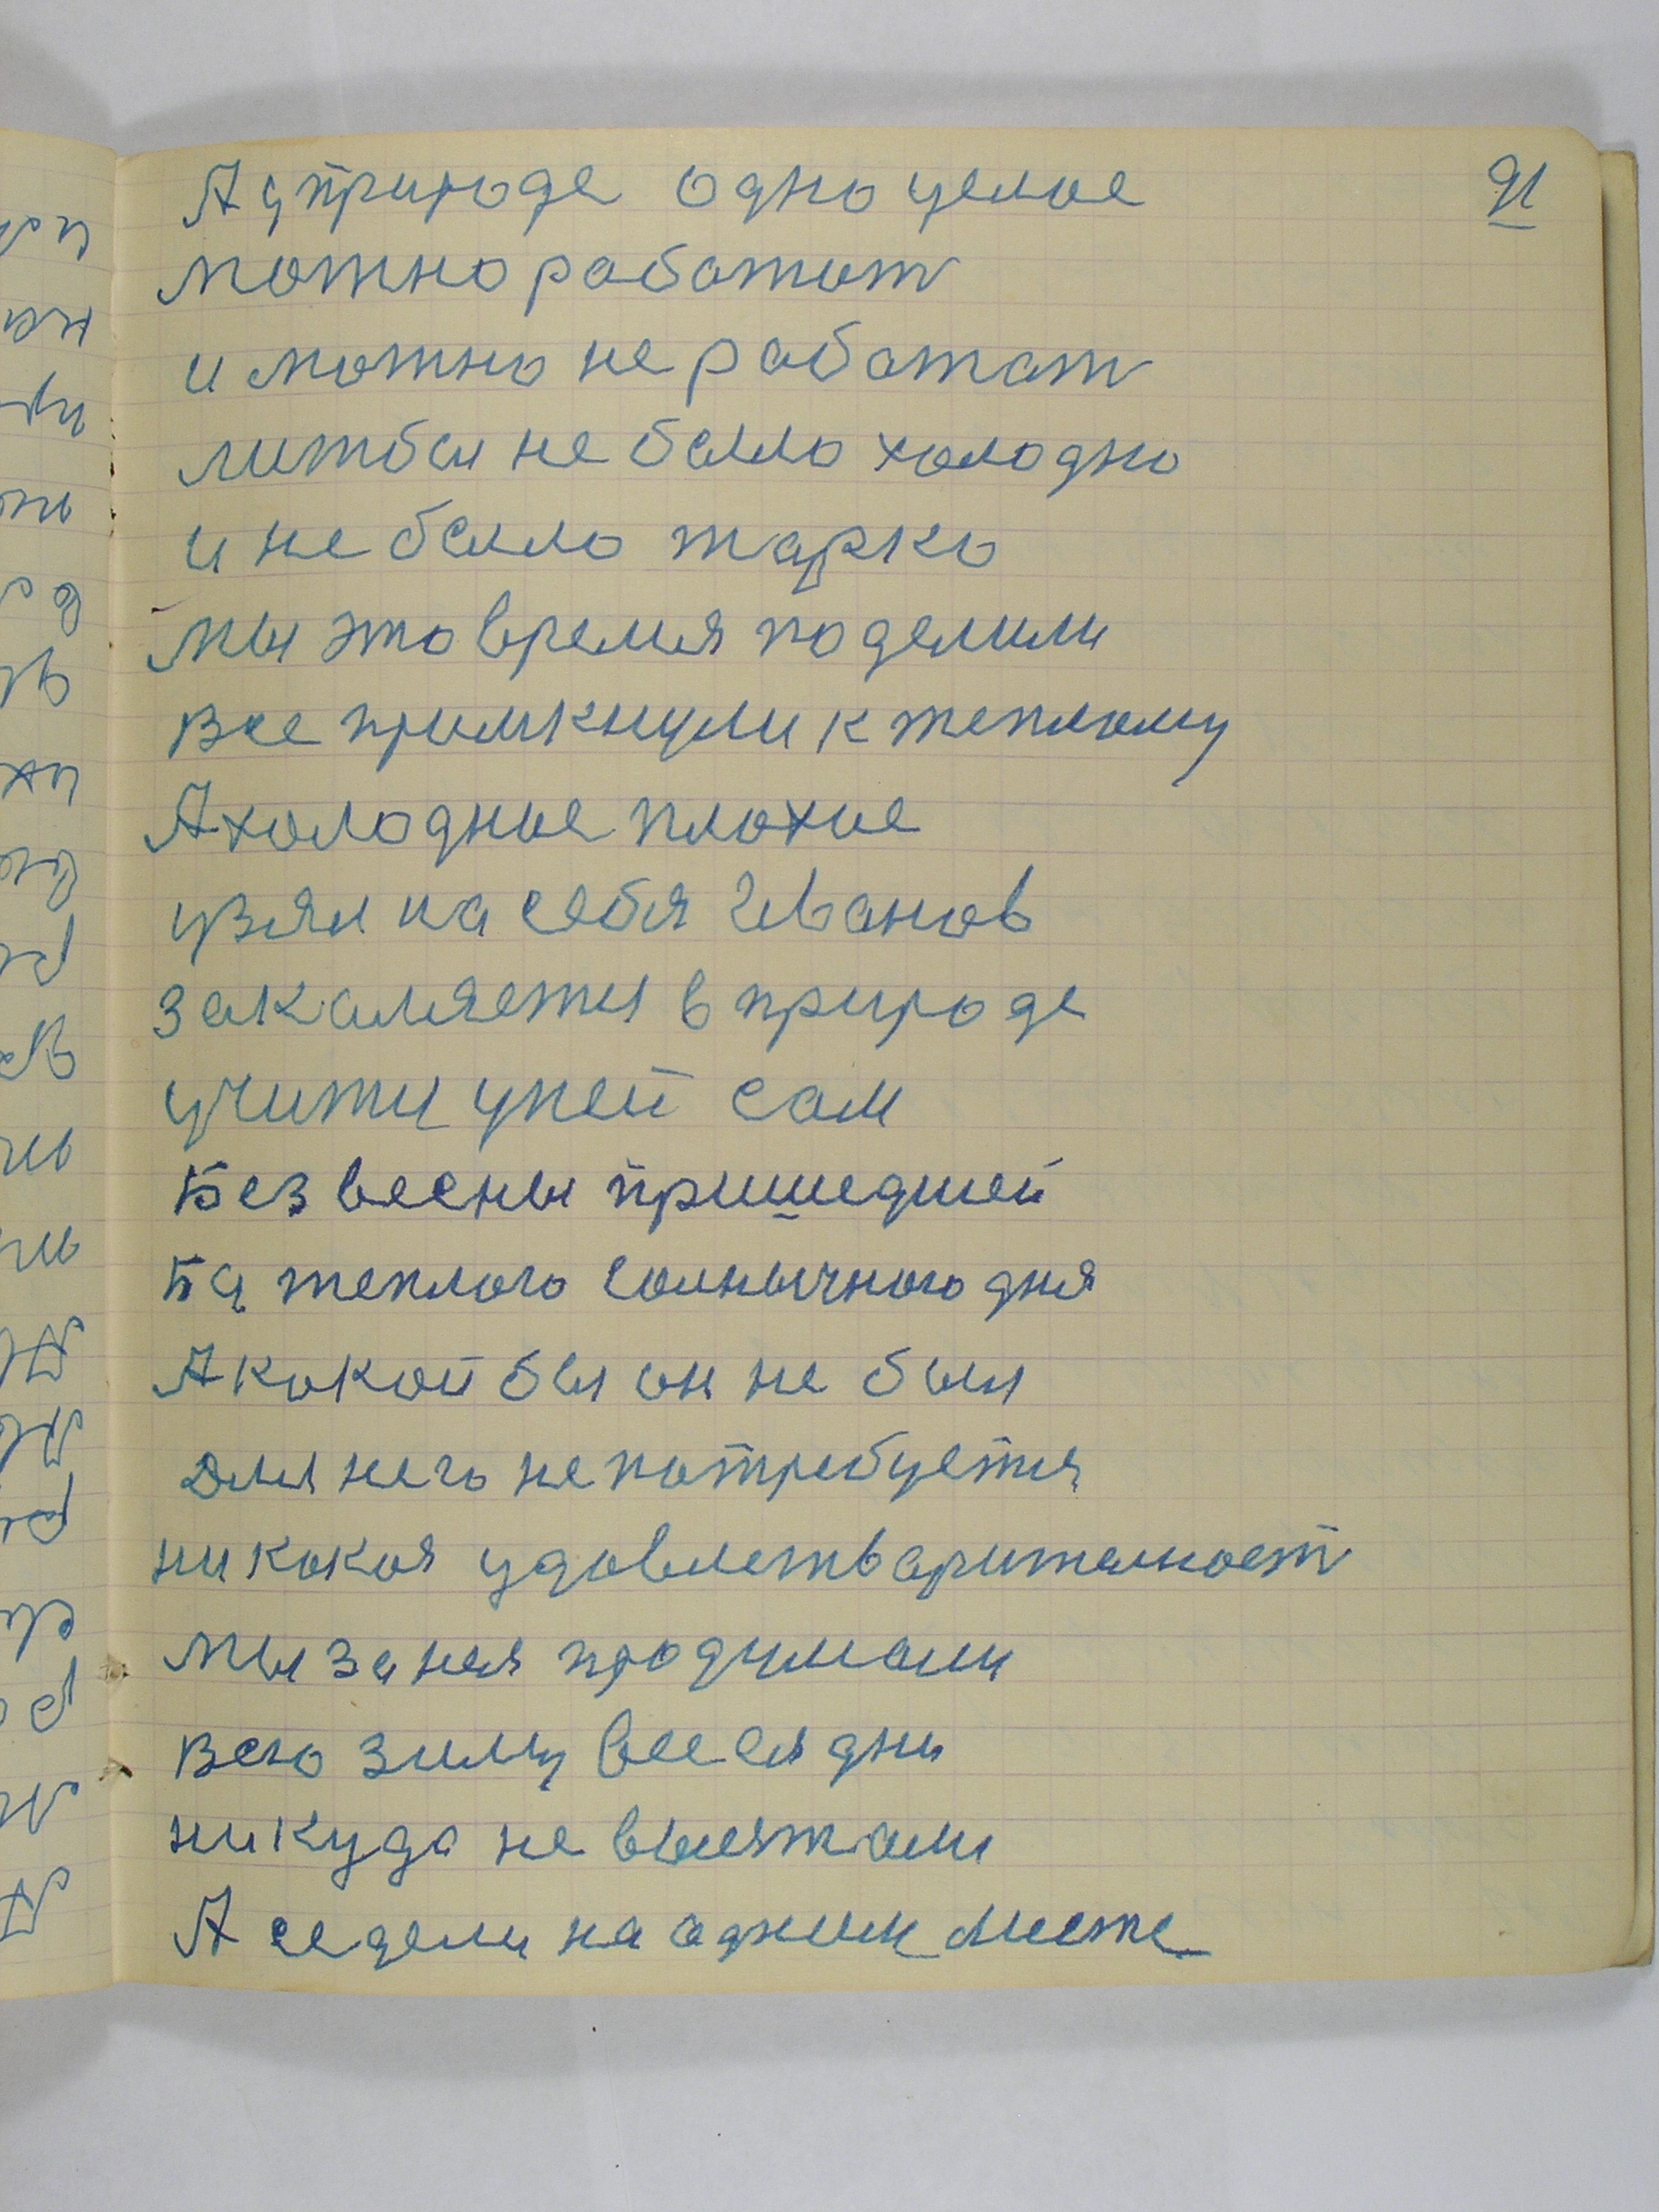 А у природе одно целое
можно работат
и можно не работат
лижбы не было холодно
и не было жарко
мы это время поделили
все примкнули к теплому
А холодное плохое
узял на себя Иванов
закаляетя в природе
учитя у ней сам
Без весны пришедшей
Бэ теплого солнычного дня
А какой бы он не был
Для него не потребуетя
ни какоя удовлетварителност
мы за нея продумали
всю зиму все ея дни
никуда не выежали
А седели на одним месте
91